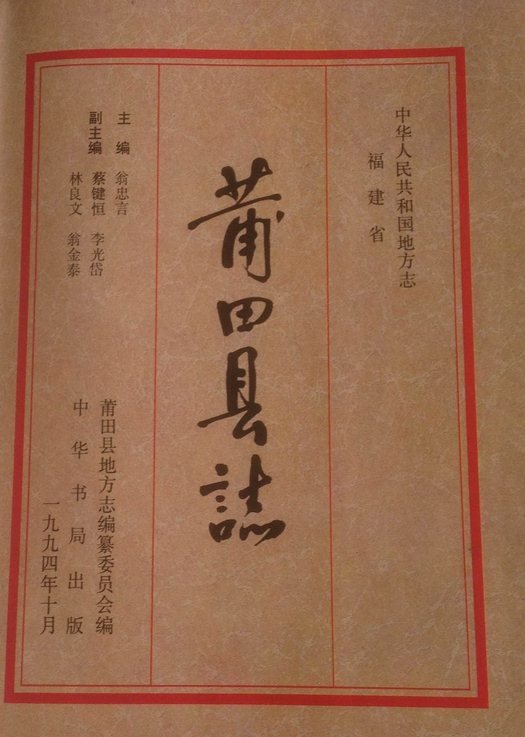 中华人民共和国地方志
福建省
莆田县誌
主编 翁忠言
副主编 蔡键恒 李光岱
林良文 翁金泰
莆田县地方志编纂委员会编
中华书局出版
一九九四年十月